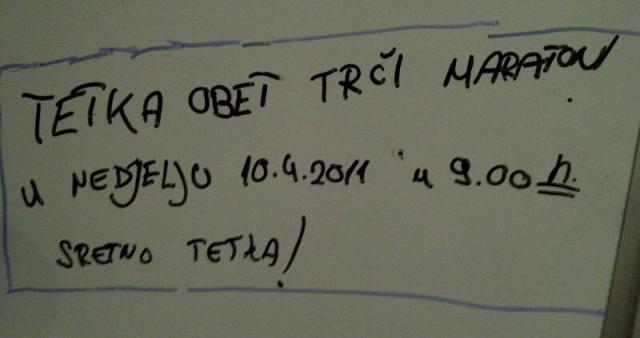 TETKA OBET TRČI MARATON!
U NEDJELJU 10.4.2011 u 9.00 h.
SRETNO TETKA!